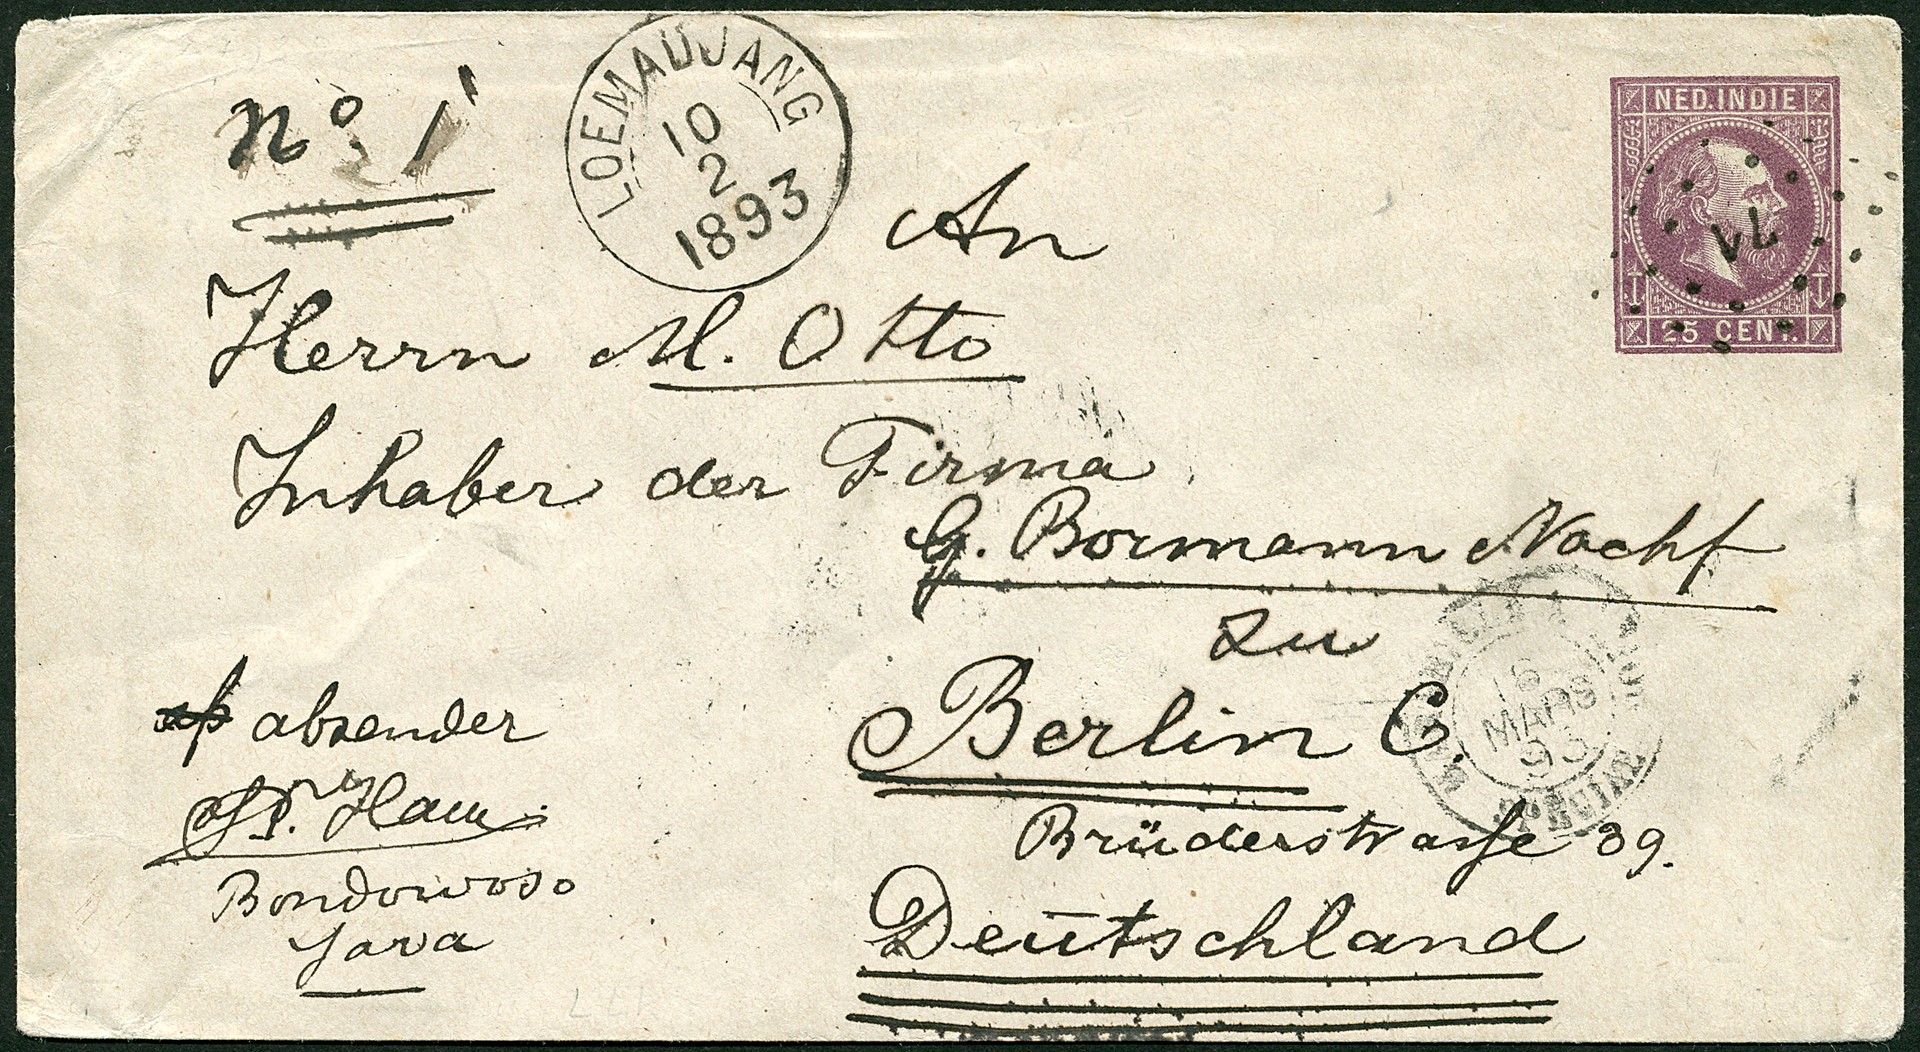 No. 1
LOEMADJANG
10
2
1893
NED. INDIE
25 CENT.
An
Herrn M. Otto
Inhaber der Firma
G. Bormann Nachf
zu
Berlin C.
Brüderstrasse 39.
Deutschland
absender
Bondowoso
Java
16
MARS
93